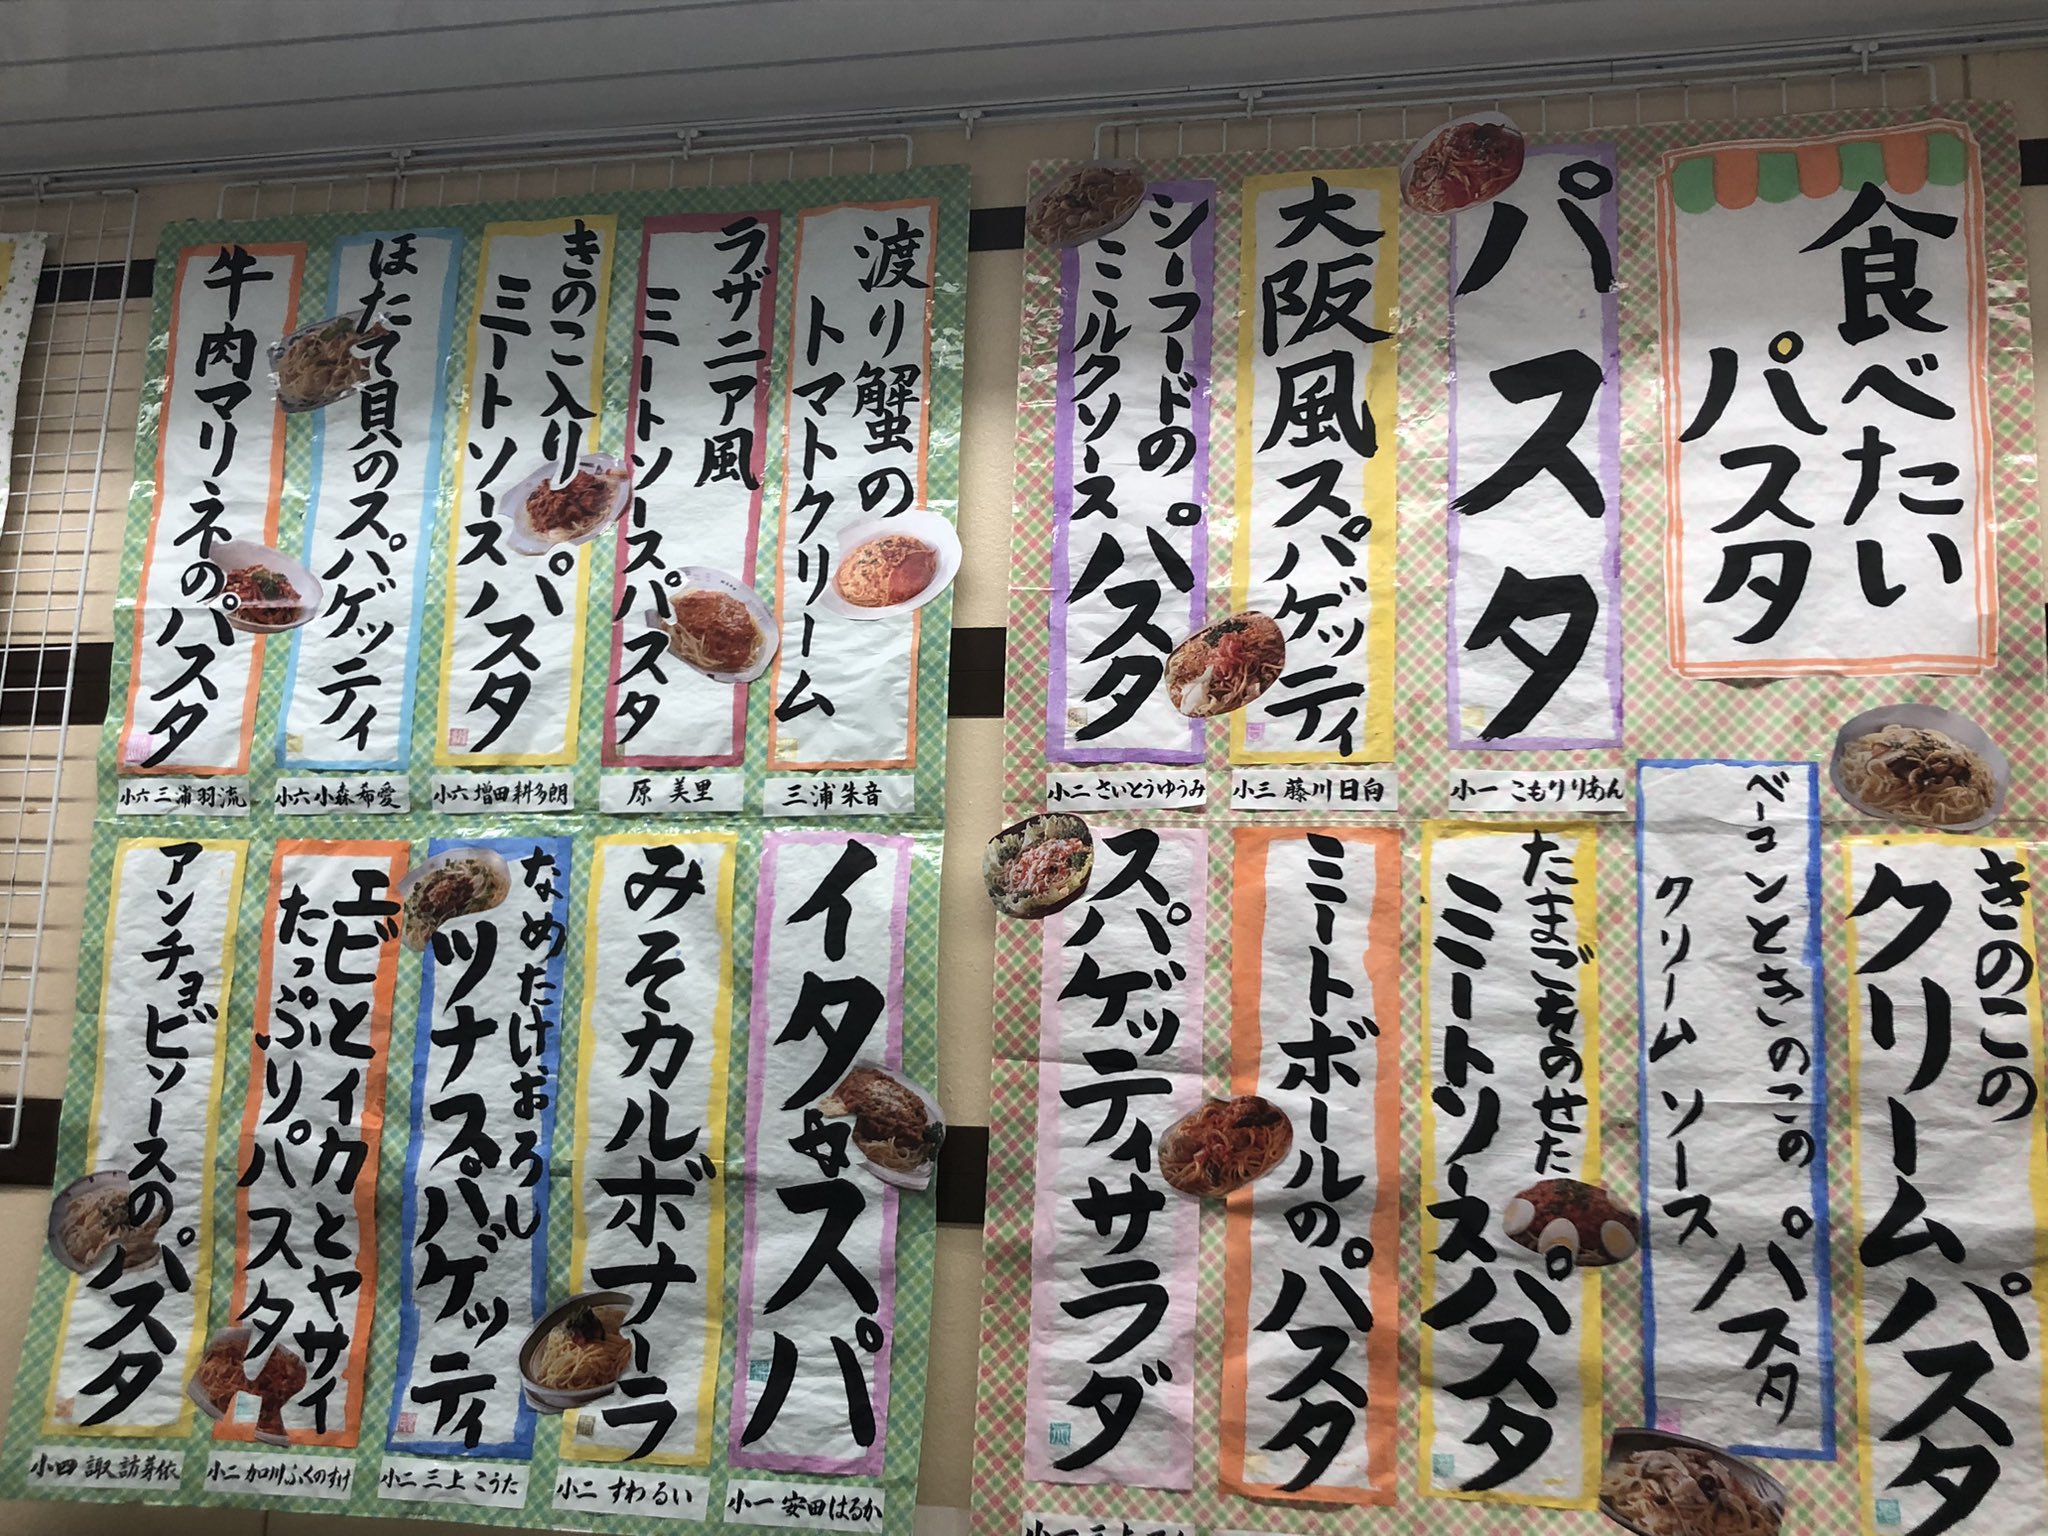 食べたい
パスタ
パスタ
小一 こもりりあん
大阪風スパゲッティ
小三 藤川日向
シーフードの
ミルクソースパスタ
小二 さいとうゆうみ
きのこの
クリームパスタ
ベーコンときのこの
クリームソース
パスタ
たまごをのせた
ミートソースパスタ
ミートボールのパスタ
スパゲッティサラダ
渡り蟹の
トマトクリーム
三浦朱音
ラザニア風
ミートソースパスタ
原 美里
きのこ入り
ミートソースパスタ
小六 増田耕多朗
ほたて貝のスパゲッティ
小六 小森希愛
牛肉マリネのパスタ
小六 三浦羽流
イタスパ
小一 安田はるか
みそカルボナーラ
小二 すわるい
なめたけおろし
ツナスパゲッティ
小二 三上こうた
エビとイカとヤサイ
たっぷりパスタ
小二 加川ふくのすけ
アンチョビソースのパスタ
小四 諏訪芽依